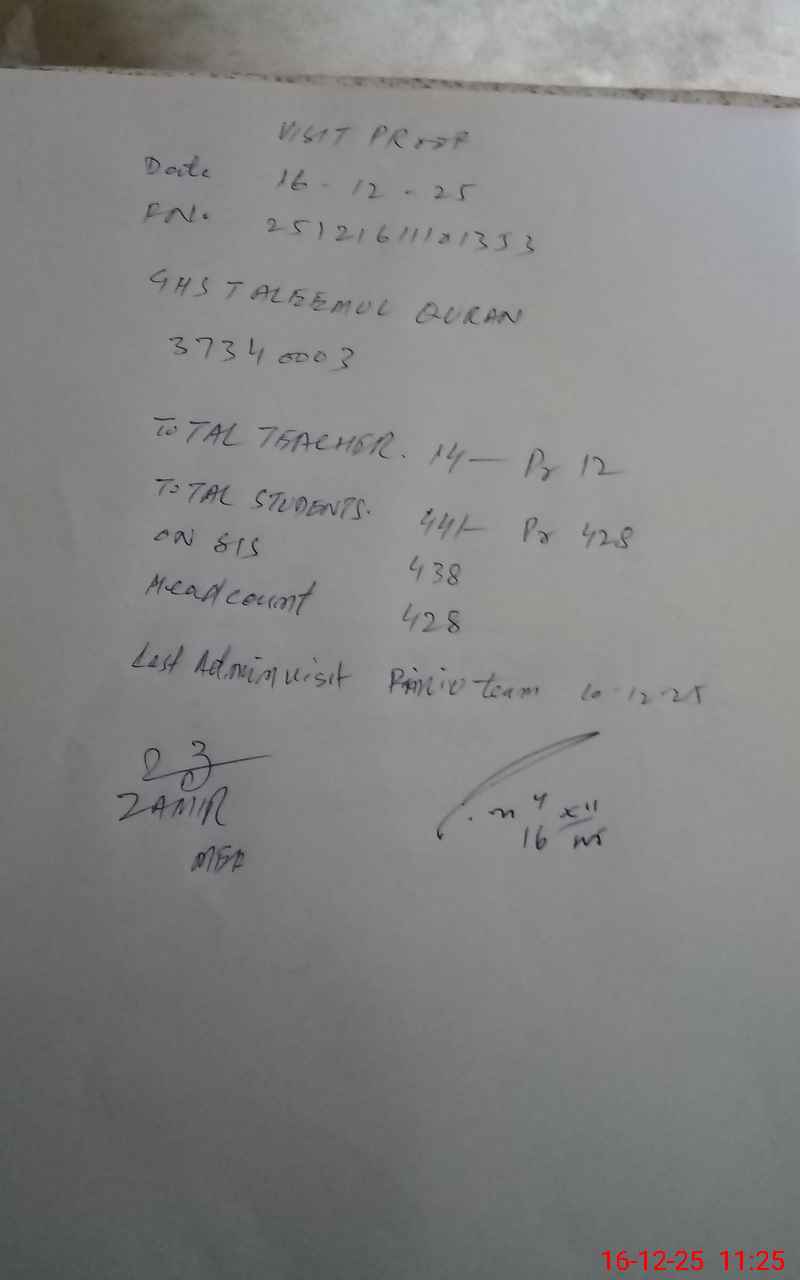 VISIT PROOF
Date 16-12-25
F.No. 25121611101353
GHS TALEEMUL QURAN
37340003
TOTAL TEACHER. 14- Pr 12
TOTAL STUDENTS. 441- Pr 428
ON SIS 438
Headcount 428
Last Admin visit team 10-12-25
ZAMIR
MEA
16
16-12-25 11:25